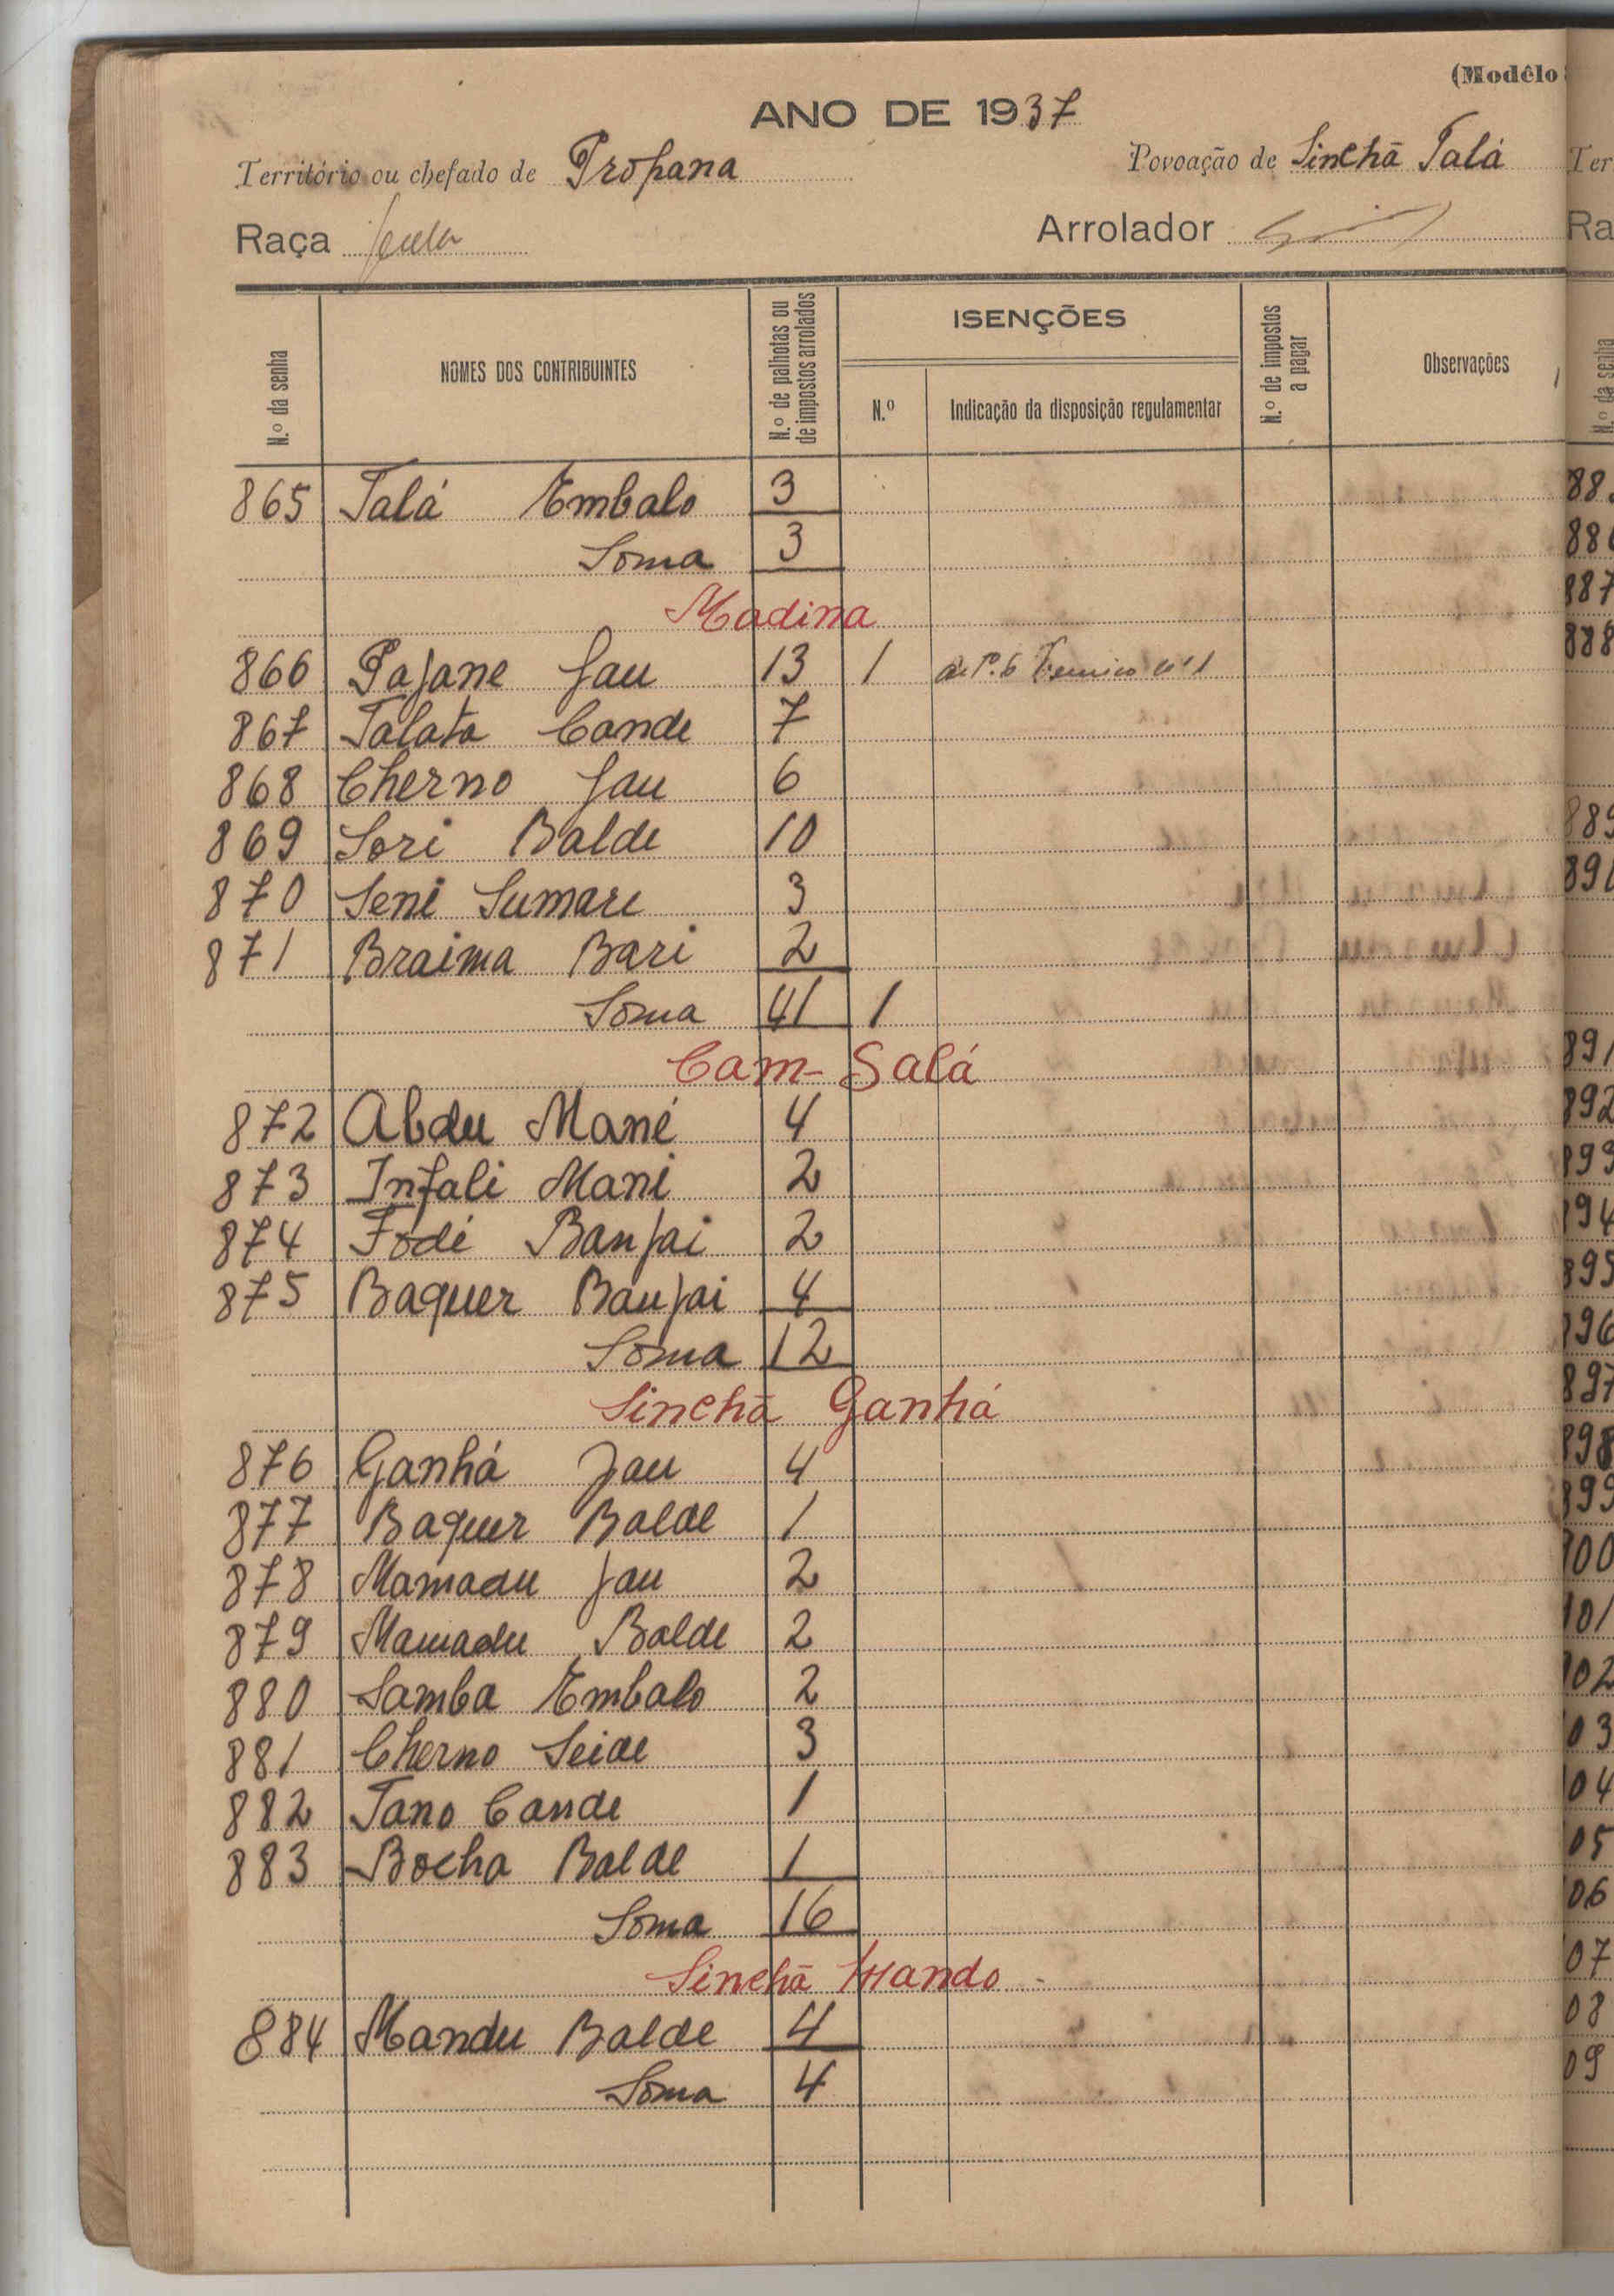 (Modêlo
ANO DE 1937
Território ou chefado de Propana Povoação de Sinchã Talá
Raça fula Arrolador
N.º da senha
NOMES DOS CONTRIBUINTES
N.º de palhotas ou de impostos arrolados
ISENÇÕES
N.º
Indicação da disposição regulamentar
N.º de impostos a pagar
Observações
865 Talá Embalo 3
Soma 3
Madina
866 Pajane Jau 13 1
867 Talata Cande 7
868 Cherno Jau 6
869 Sori Balde 10
870 Seni Sumare 3
871 Braima Bari 2
Soma 41 1
Cam-Salá
872 Abdu Mané 4
873 Infali Mani 2
874 Fodé Banjai 2
875 Baquer Banjai 4
Soma 12
Sinchã Ganhá
876 Ganhá Jau 4
877 Baquer Balde 1
878 Mamadu Jau 2
879 Mamadu Balde 2
880 Samba Embalo 2
881 Cherno Seide 3
882 Tano Cande 1
883 Bocha Balde 1
Soma 16
Sinchã Mando
884 Mandu Balde 4
Soma 4